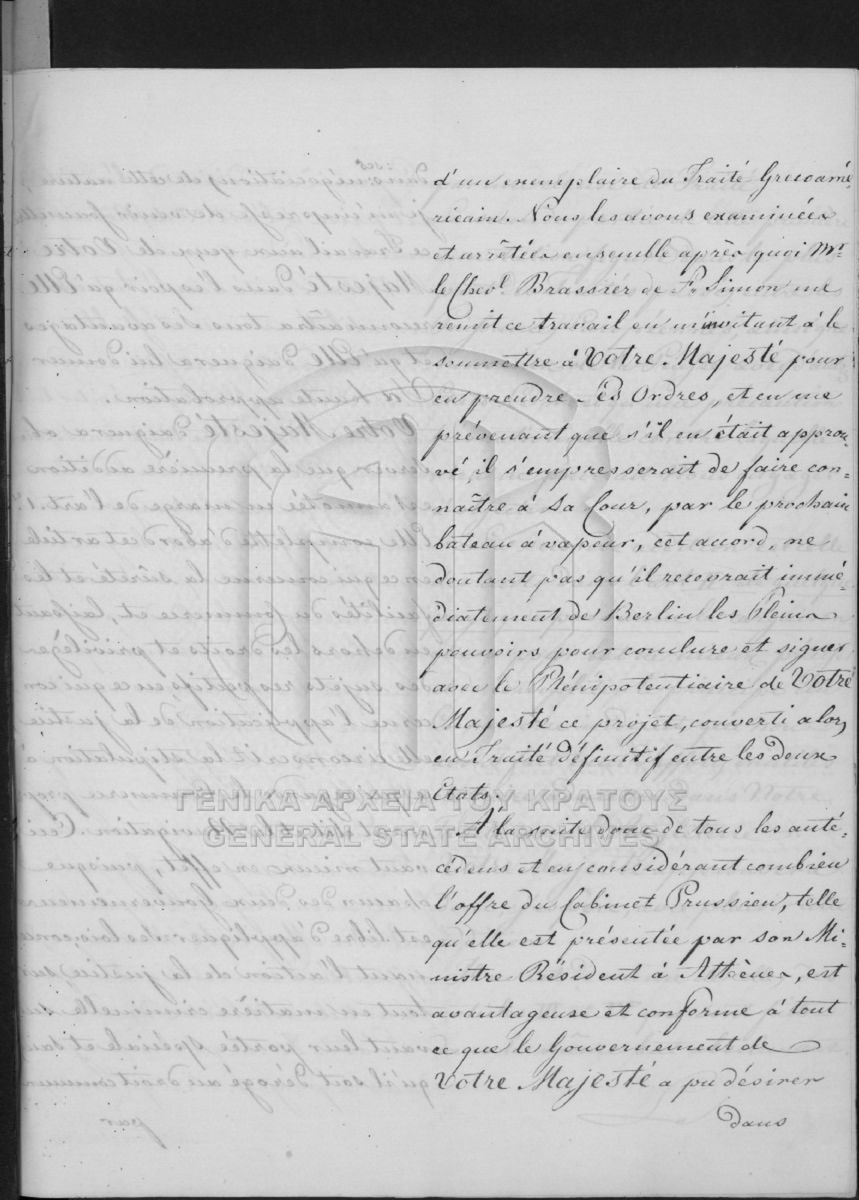 d'un exemplaire du Traité Grecoamé-
ricain. Nous les avons examinées
et arrêtées ensemble après quoi Mr
le Chevl. Brassier de St Simon me
remit ce travail en m'invitant à le
soumettre à Votre Majesté pour
en prendre Ses Ordres, et en me
prévenant que s'il en était approu-
vé, il s'empresserait de faire con-
naître à Sa Cour, par le prochain
bateau à vapeur, cet accord, ne
doutant pas qu'il recevrait immé-
diatement de Berlin les Pleins
pouvoirs pour conclure et signer
avec le Plénipotentiaire de Votre
Majesté ce projet, converti alors
en Traité définitif entre les deux
Etats.
À la suite donc de tous les anté-
cédens et en considérant combien
l'offre du Cabinet Prussien, telle
qu'elle est présentée par son Mi-
nistre Résident à Athènes, est
avantageuse et conforme à tout
ce que le Gouvernement de
Votre Majesté a pu désirer
dans
ΓΕΝΙΚΑ ΑΡΧΕΙΑ ΤΟΥ ΚΡΑΤΟΥΣ
GENERAL STATE ARCHIVES